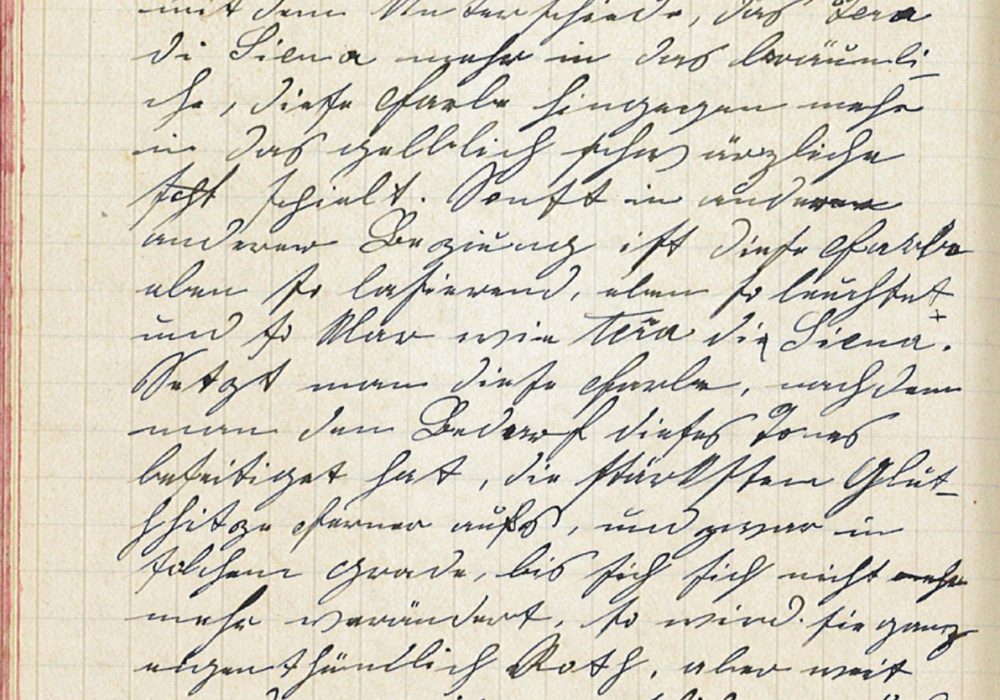 mit dem Unterschiede, das Tera
di Siena mehr in das bräunli-
che, diese Farbe hingegen mehr
in das gelblich schwärzliche
scht schielt. Sonst in anderer
anderer Beziung ist diese Farbe
eben so lasierend, eben so leuchtet
und so klar wie Tera die Siena.
Setzt man diese Farbe, nachdem
man den Bedarf dieses Tones
beseitiget hat, die stärksten Glut-
hhitze ferner aus, und zwar in
solchem Grade, bis sich sich nicht mehr
mehr verändert, so wird sie ganz
eigenthümlich Roth, aber weit